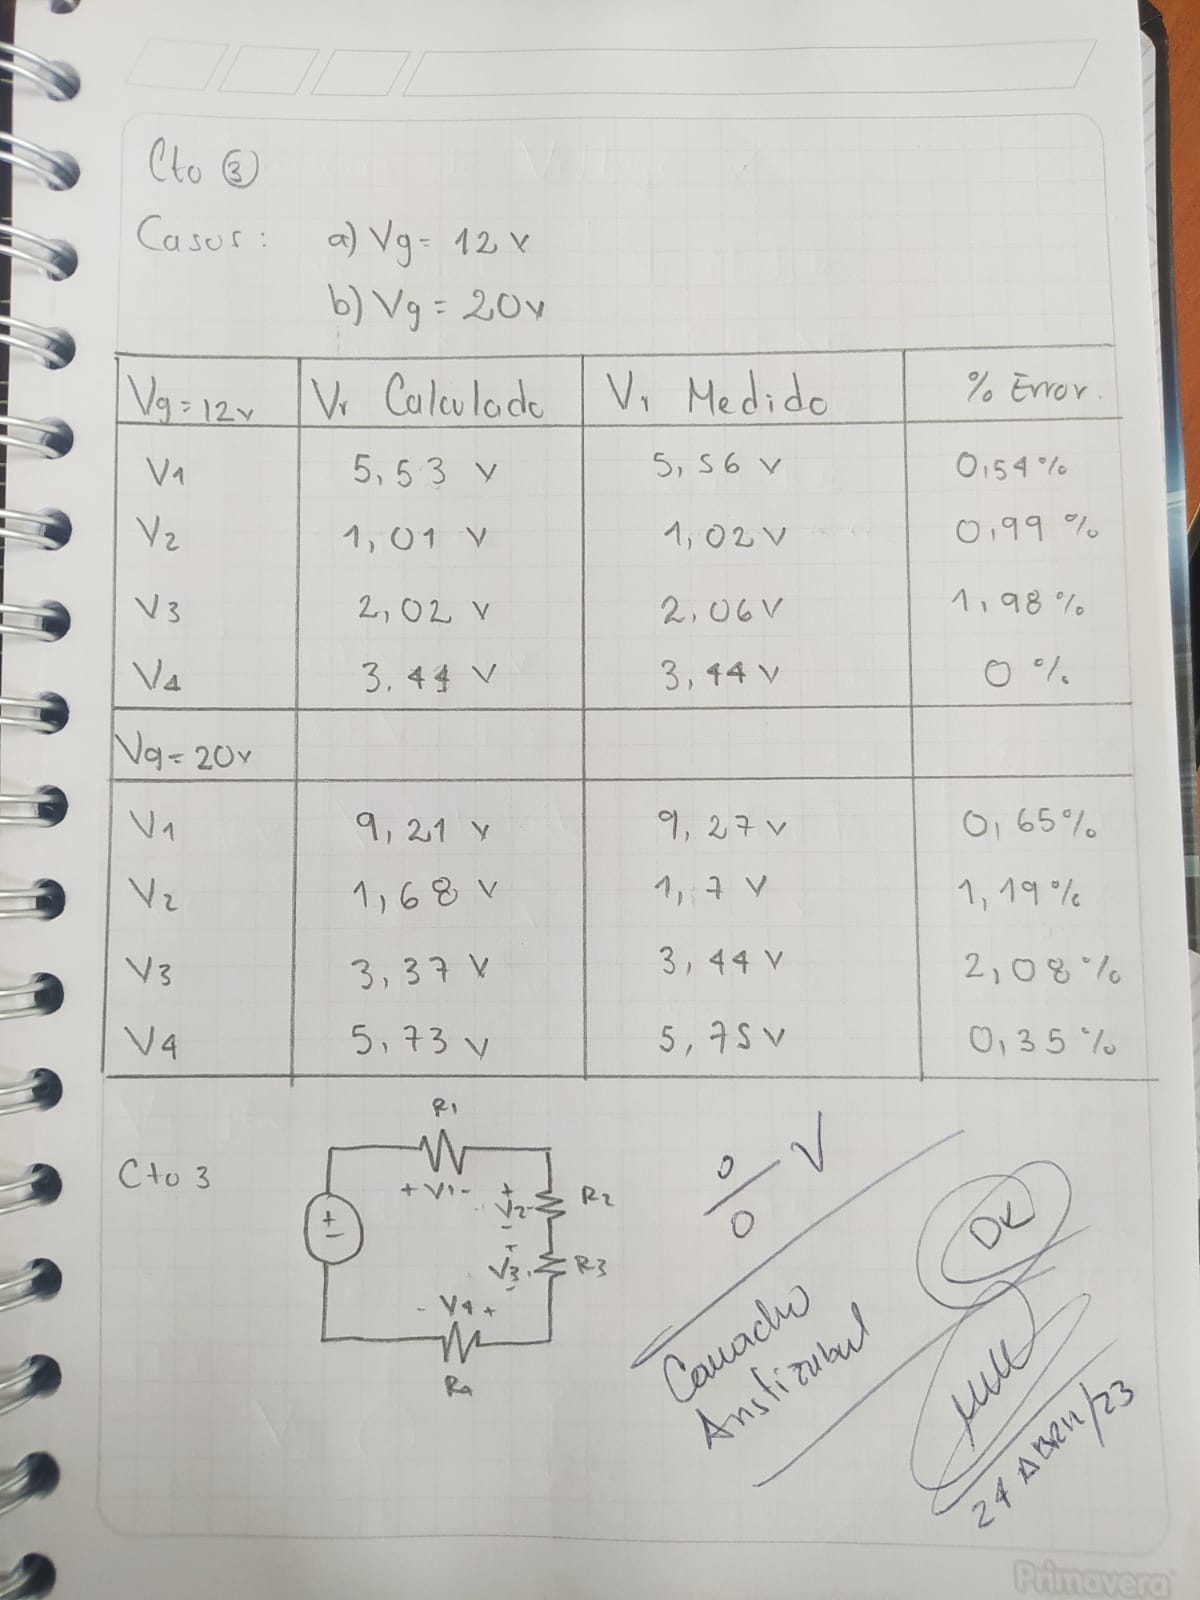 Cto ③
Casos: a) Vg = 12 v
b) Vg = 20v
Vg = 12v Vr Calculado Vr Medido % Error.
V1 5,53 v 5,56 v 0,54%
V2 1,01 v 1,02 v 0,99 %
V3 2,02 v 2.06 v 1,98 %
V4 3.44 v 3,44 v 0 %
Vg = 20v
V1 9,21 v 9,27 v 0,65%
V2 1,68 v 1,7 v 1,19%
V3 3,37 v 3,44 v 2,08 %
V4 5,73 v 5,75 v 0,35 %
Cto 3
R1
+ V1 -
+
V2
-
R2
+
V3
-
R3
- V4 +
R4
+
-
V
OK
Camacho
24 ABRIL/23
Primavera